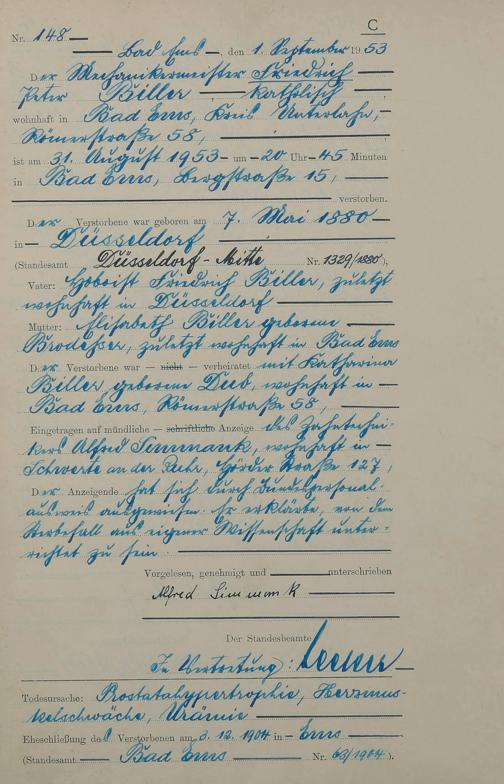 C
Nr. 148
Bad Ems, den 1. September 1953
Der Mechanikermeister Friedrich
Peter Biller katholisch
wohnhaft in Bad Ems, Kreis Unterlahn,
Römerstraße 58,
ist am 31. August 1953 um 20 Uhr 45 Minuten
in Bad Ems, Bergstraße 15,
verstorben.
Der Verstorbene war geboren am 7. Mai 1880
in Düsseldorf
(Standesamt Düsseldorf-Mitte Nr. 1329/1880),
Vater: Hoboist Friedrich Biller, zuletzt
wohnhaft in Düsseldorf
Mutter: Elisabeth Biller geborene
zuletzt wohnhaft in Bad Ems
Der Verstorbene war — nicht — verheiratet mit Katharina
Biller geborene wohnhaft in
Bad Ems, Römerstraße 58,
Eingetragen auf mündliche — schriftliche Anzeige des Zahntechni-
kers Alfred Simmank, wohnhaft in
Schwerte an der Ruhr, Hörder Straße 127,
Der Anzeigende hat sich durch Bundespersonal-
ausweis ausgewiesen. Er erklärte, von dem
Sterbefall aus eigener Wissenschaft unter-
richtet zu sein.
Vorgelesen, genehmigt und unterschrieben
Alfred Simmank
Der Standesbeamte
In Vertretung:
Todesursache: Prostatahypertrophie, Herzmus-
kelschwäche, Urämie
Eheschließung des Verstorbenen am 3. 12. 1904 in Ems
(Standesamt Bad Ems Nr. 63/1904).